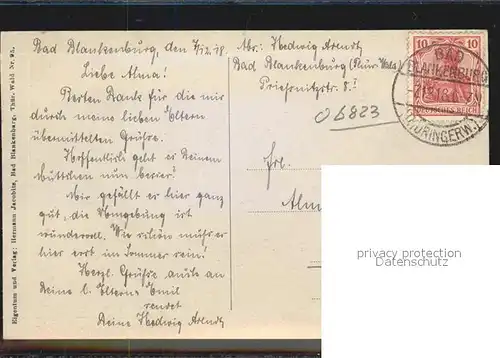 Bad Blankenburg, den 7/12.18.
Liebe Alma!
Besten Dank für die mir
durch meine lieben Eltern
übermittelten Grüße.
Hoffentlich geht es Deinem
Muttchen nun besser!
Mir gefällt es hier ganz
gut, die Umgebung ist
wundervoll. Wie schön muß es
hier erst im Sommer sein.
Herzl. Grüße auch an
Deine l. Eltern
sendet
Deine Hedwig Arendt
Abs: Hedwig Arendt
Bad Blankenburg (Thür. Wald)
Prießnitzstr. 8!
06823
Frl.
Alm
10 10
DEUTSCHES REICH
BAD
BLANKENBURG
(THÜRINGERW.)
Eigentum und Verlag: Hermann Jacobitz, Bad Blankenburg, Thür. Wald Nr. 91.
privacy protection
Datenschutz